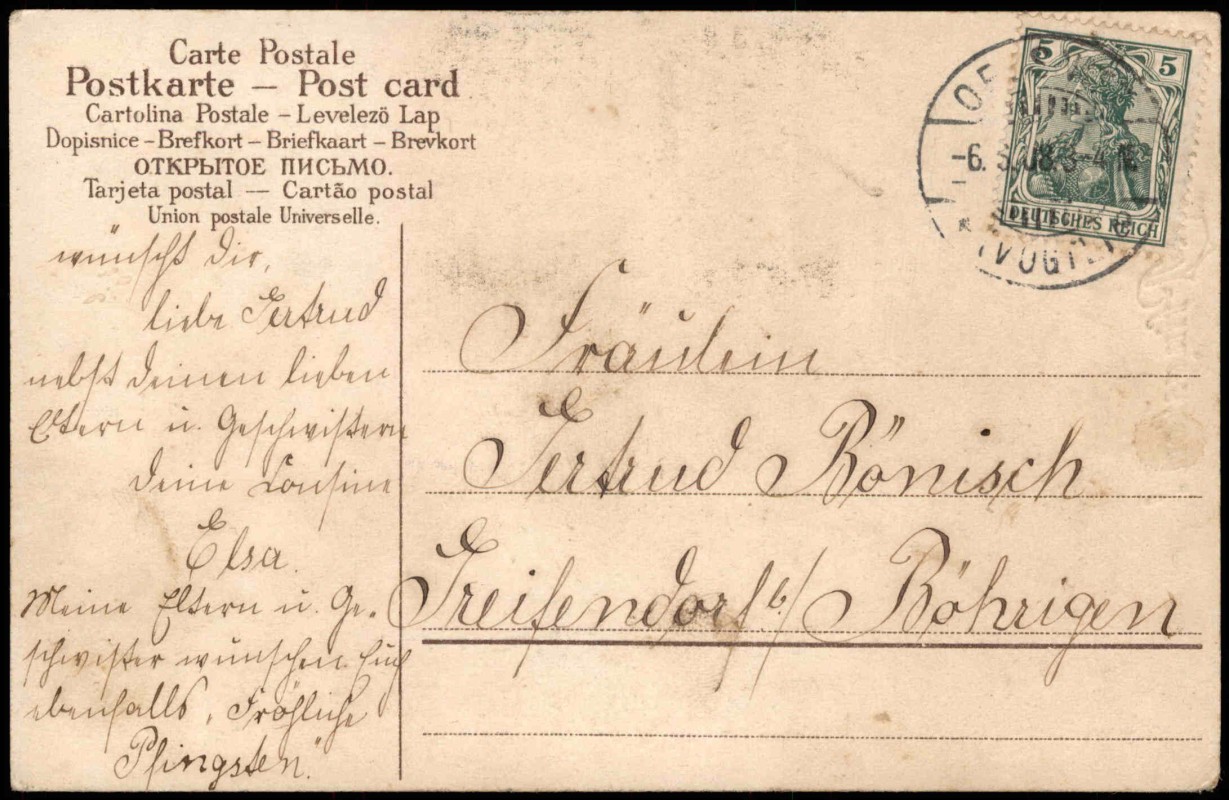 Carte Postale
Postkarte — Post card
Cartolina Postale – Levelezö Lap
Dopisnice – Brefkort – Briefkaart – Brevkort
ОТКРЫТОЕ ПИСЬМО.
Tarjeta postal — Cartão postal
Union postale Universelle.
5 5
DEUTSCHES REICH
(VOGTL.)
wünscht dir,
liebe Gertrud
nebst deinen lieben
Eltern u. Geschwistern
deine Cousine
Elsa.
Meine Eltern u. Ge-
schwister wünschen Euch
ebenfalls „Fröhliche
Pfingsten."
Fräulein
Gertrud Bönisch
Greifendorf b/ Böhrigen